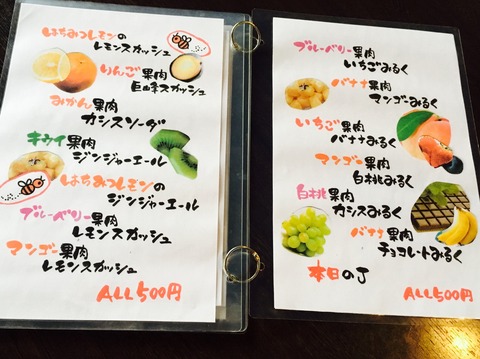 はちみつレモンの
レモンスカッシュ
りんご果肉
巨峰スカッシュ
みかん果肉
カシスソーダ
キウイ果肉
ジンジャーエール
はちみつレモンの
ジンジャーエール
ブルーベリー果肉
レモンスカッシュ
マンゴー果肉
レモンスカッシュ
ALL500円
ブルーベリー果肉
いちごみるく
バナナ果肉
マンゴーみるく
いちご果肉
バナナみるく
マンゴー果肉
白桃みるく
白桃果肉
カシスみるく
バナナ果肉
チョコレートみるく
本日のJ
ALL500円